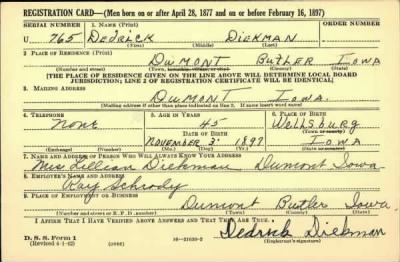 REGISTRATION CARD—(Men born on or after April 28, 1877 and on or before February 16, 1897)
SERIAL NUMBER 1. NAME (Print)
U 765 DEDRICK DIEKMAN
(First) (Middle) (Last)
2. PLACE OF RESIDENCE (Print)
DUMONT BUTLER IOWA
(Number and street) (Town, township, village, or city) (County) (State)
[THE PLACE OF RESIDENCE GIVEN ON THE LINE ABOVE WILL DETERMINE LOCAL BOARD
JURISDICTION; LINE 2 OF REGISTRATION CERTIFICATE WILL BE IDENTICAL]
3. MAILING ADDRESS
DUMONT IOWA.
[Mailing address if other than place indicated on line 2. If same insert word same]
4. TELEPHONE 5. AGE IN YEARS 6. PLACE OF BIRTH
NONE 45 WELLSBURG
DATE OF BIRTH (Town or county)
NOVEMBER 3 1897 IOWA
(Exchange) (Number) (Mo.) (Day) (Yr.) (State or country)
7. NAME AND ADDRESS OF PERSON WHO WILL ALWAYS KNOW YOUR ADDRESS
Mrs Lillian Diekman Dumont Iowa
8. EMPLOYER'S NAME AND ADDRESS
Ray Schrody
9. PLACE OF EMPLOYMENT OR BUSINESS
Dumont Butler Iowa.
(Number and street or R. F. D. number) (Town) (County) (State)
I AFFIRM THAT I HAVE VERIFIED ABOVE ANSWERS AND THAT THEY ARE TRUE.
D. S. S. Form 1 Dedrick Diekman
(Revised 4-1-42) (over) 16—21630-2 (Registrant's signature)